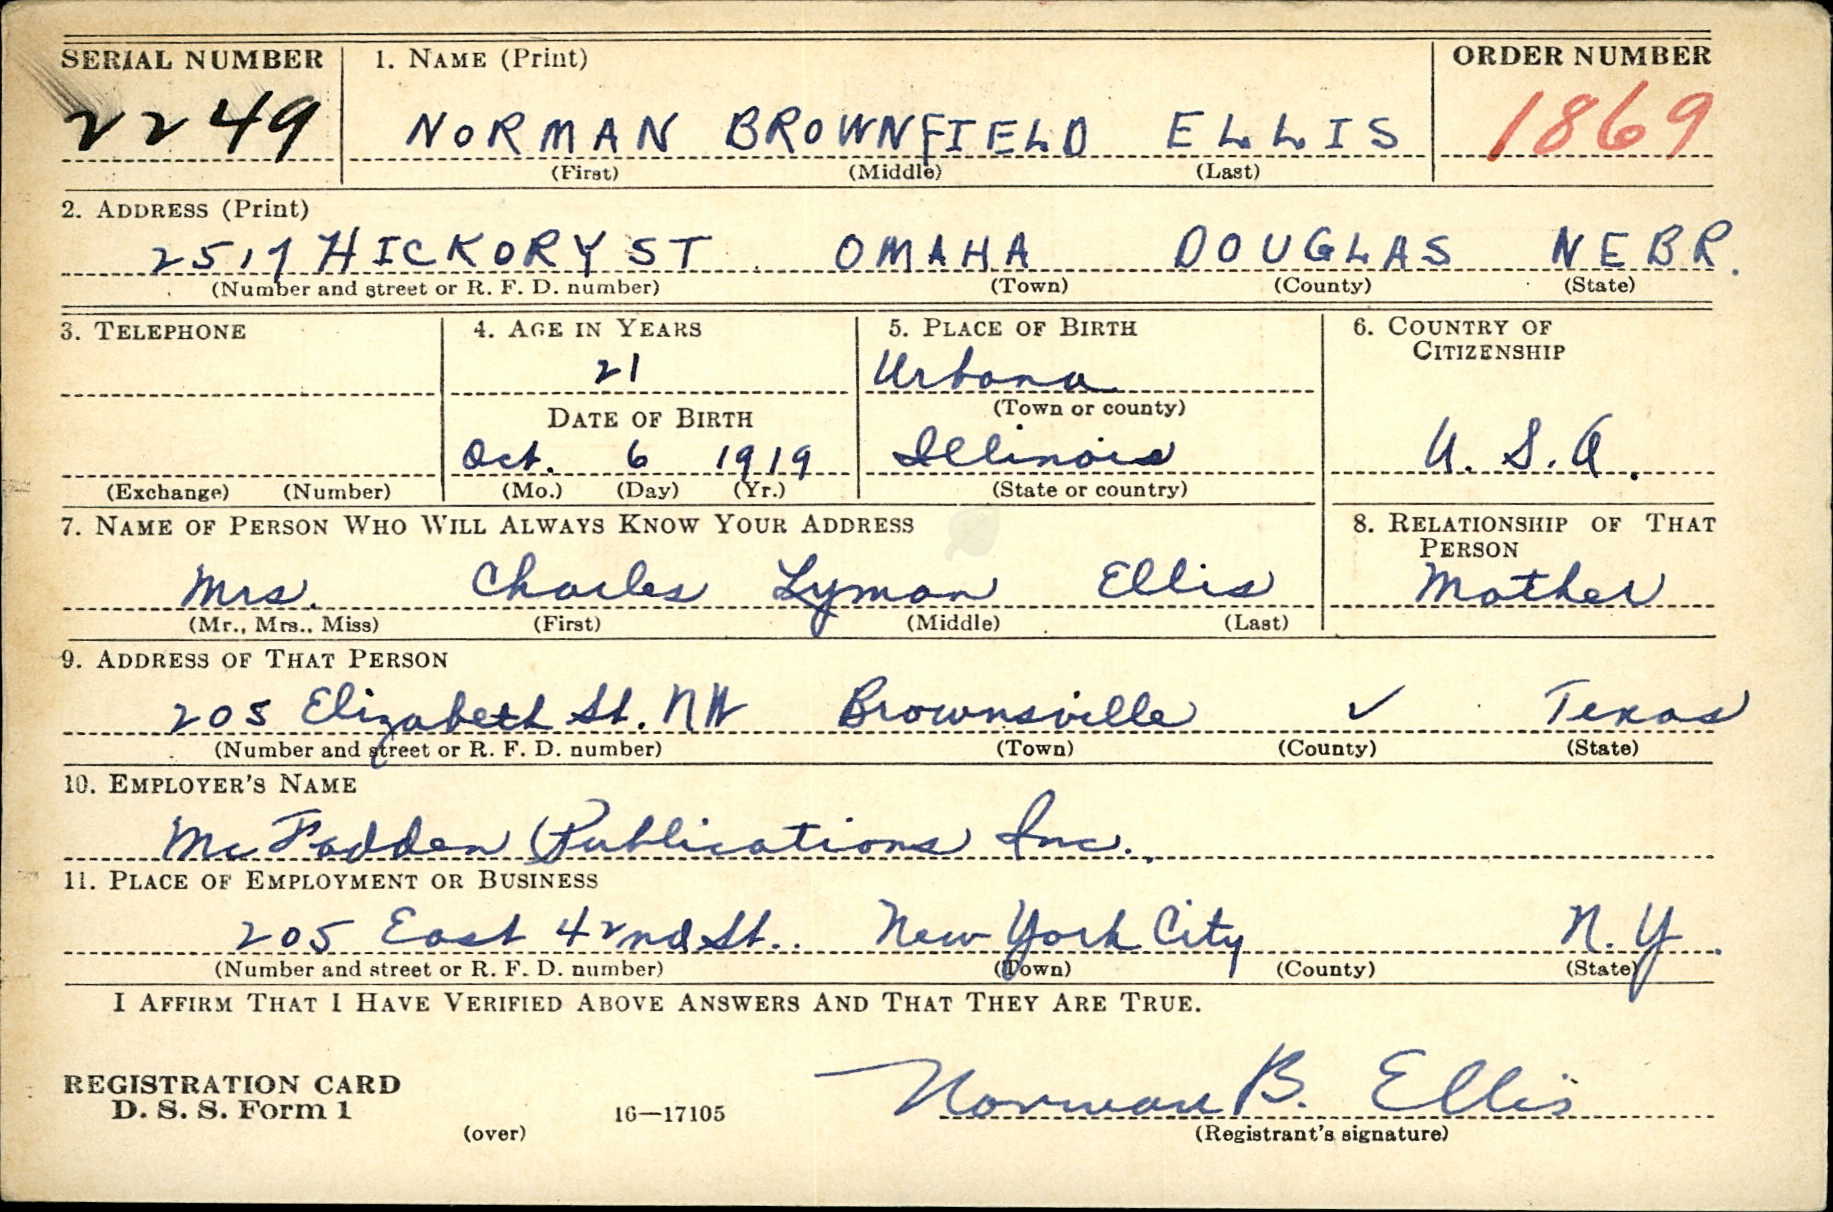 SERIAL NUMBER 1. NAME (Print) ORDER NUMBER
2249 NORMAN BROWNFIELD ELLIS 1869
(First) (Middle) (Last)
2. ADDRESS (Print)
2517 HICKORY ST OMAHA DOUGLAS NEBR.
(Number and street or R. F. D. number) (Town) (County) (State)
3. TELEPHONE 4. AGE IN YEARS 5. PLACE OF BIRTH 6. COUNTRY OF
CITIZENSHIP
21 Urbana
DATE OF BIRTH (Town or county)
Oct. 6 1919 Illinois U. S. A.
(Exchange) (Number) (Mo.) (Day) (Yr.) (State or country)
7. NAME OF PERSON WHO WILL ALWAYS KNOW YOUR ADDRESS 8. RELATIONSHIP OF THAT
PERSON
Mrs. Charles Lyman Ellis Mother
(Mr., Mrs., Miss) (First) (Middle) (Last)
9. ADDRESS OF THAT PERSON
205 Elizabeth St. NW Brownsville ✓ Texas
(Number and street or R. F. D. number) (Town) (County) (State)
10. EMPLOYER'S NAME
McFadden Publications Inc.
11. PLACE OF EMPLOYMENT OR BUSINESS
205 East 42nd St. New York City N. Y.
(Number and street or R. F. D. number) (Town) (County) (State)
I AFFIRM THAT I HAVE VERIFIED ABOVE ANSWERS AND THAT THEY ARE TRUE.
REGISTRATION CARD
D. S. S. Form 1 16—17105 Norman B. Ellis
(over) (Registrant's signature)